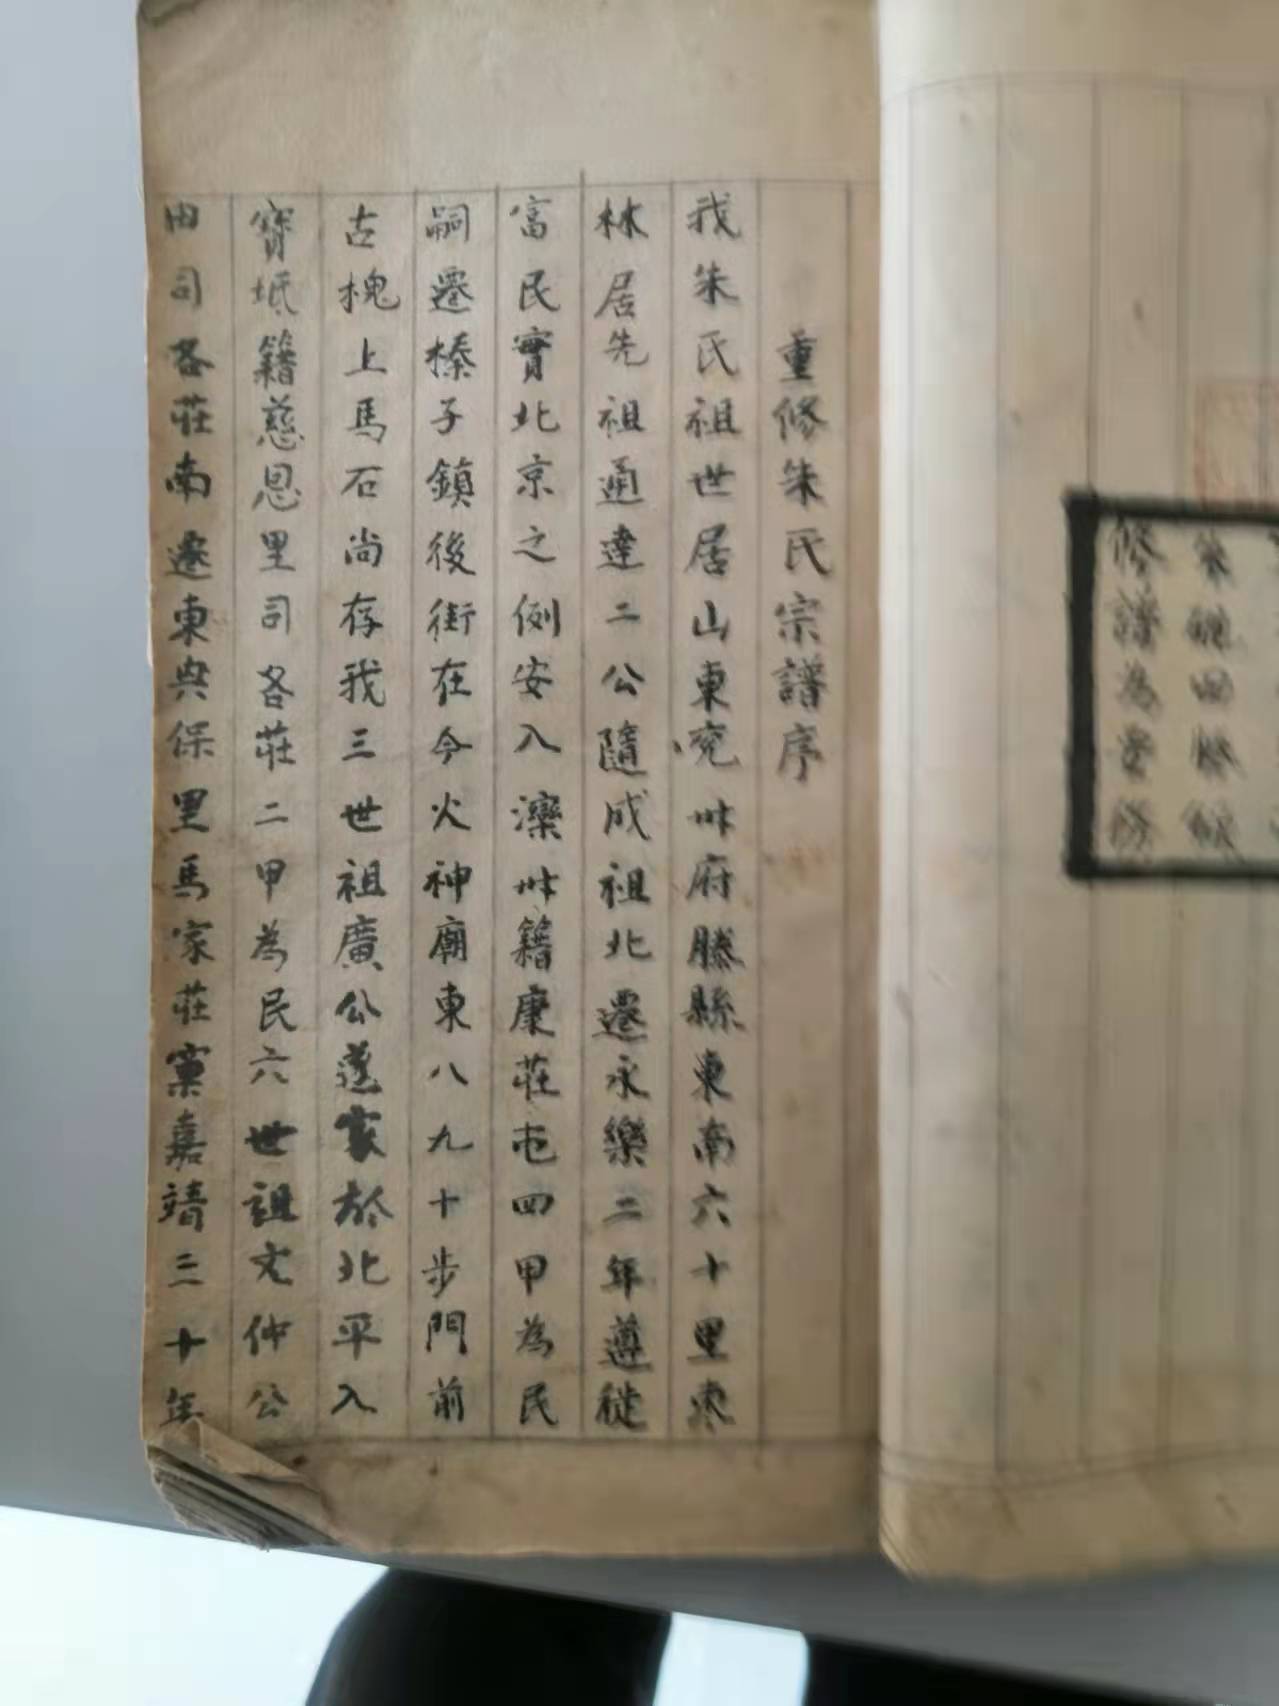 修譜為
重修朱氏宗譜序
我朱氏祖世居山東兖州府滕縣東南六十里棗
林居先祖通達二公隨成祖北遷永樂二年遵徙
富民實北京之例安入灤州籍康莊屯四甲為民
嗣遷榛子鎮後街在今火神廟東八九十步門前
古槐上馬石尚存我三世祖廣公遂家於北平入
寶坻籍慈恩里司各莊二甲為民六世祖文仲公
由司各莊南遷東與保里馬家莊窠嘉靖三十年